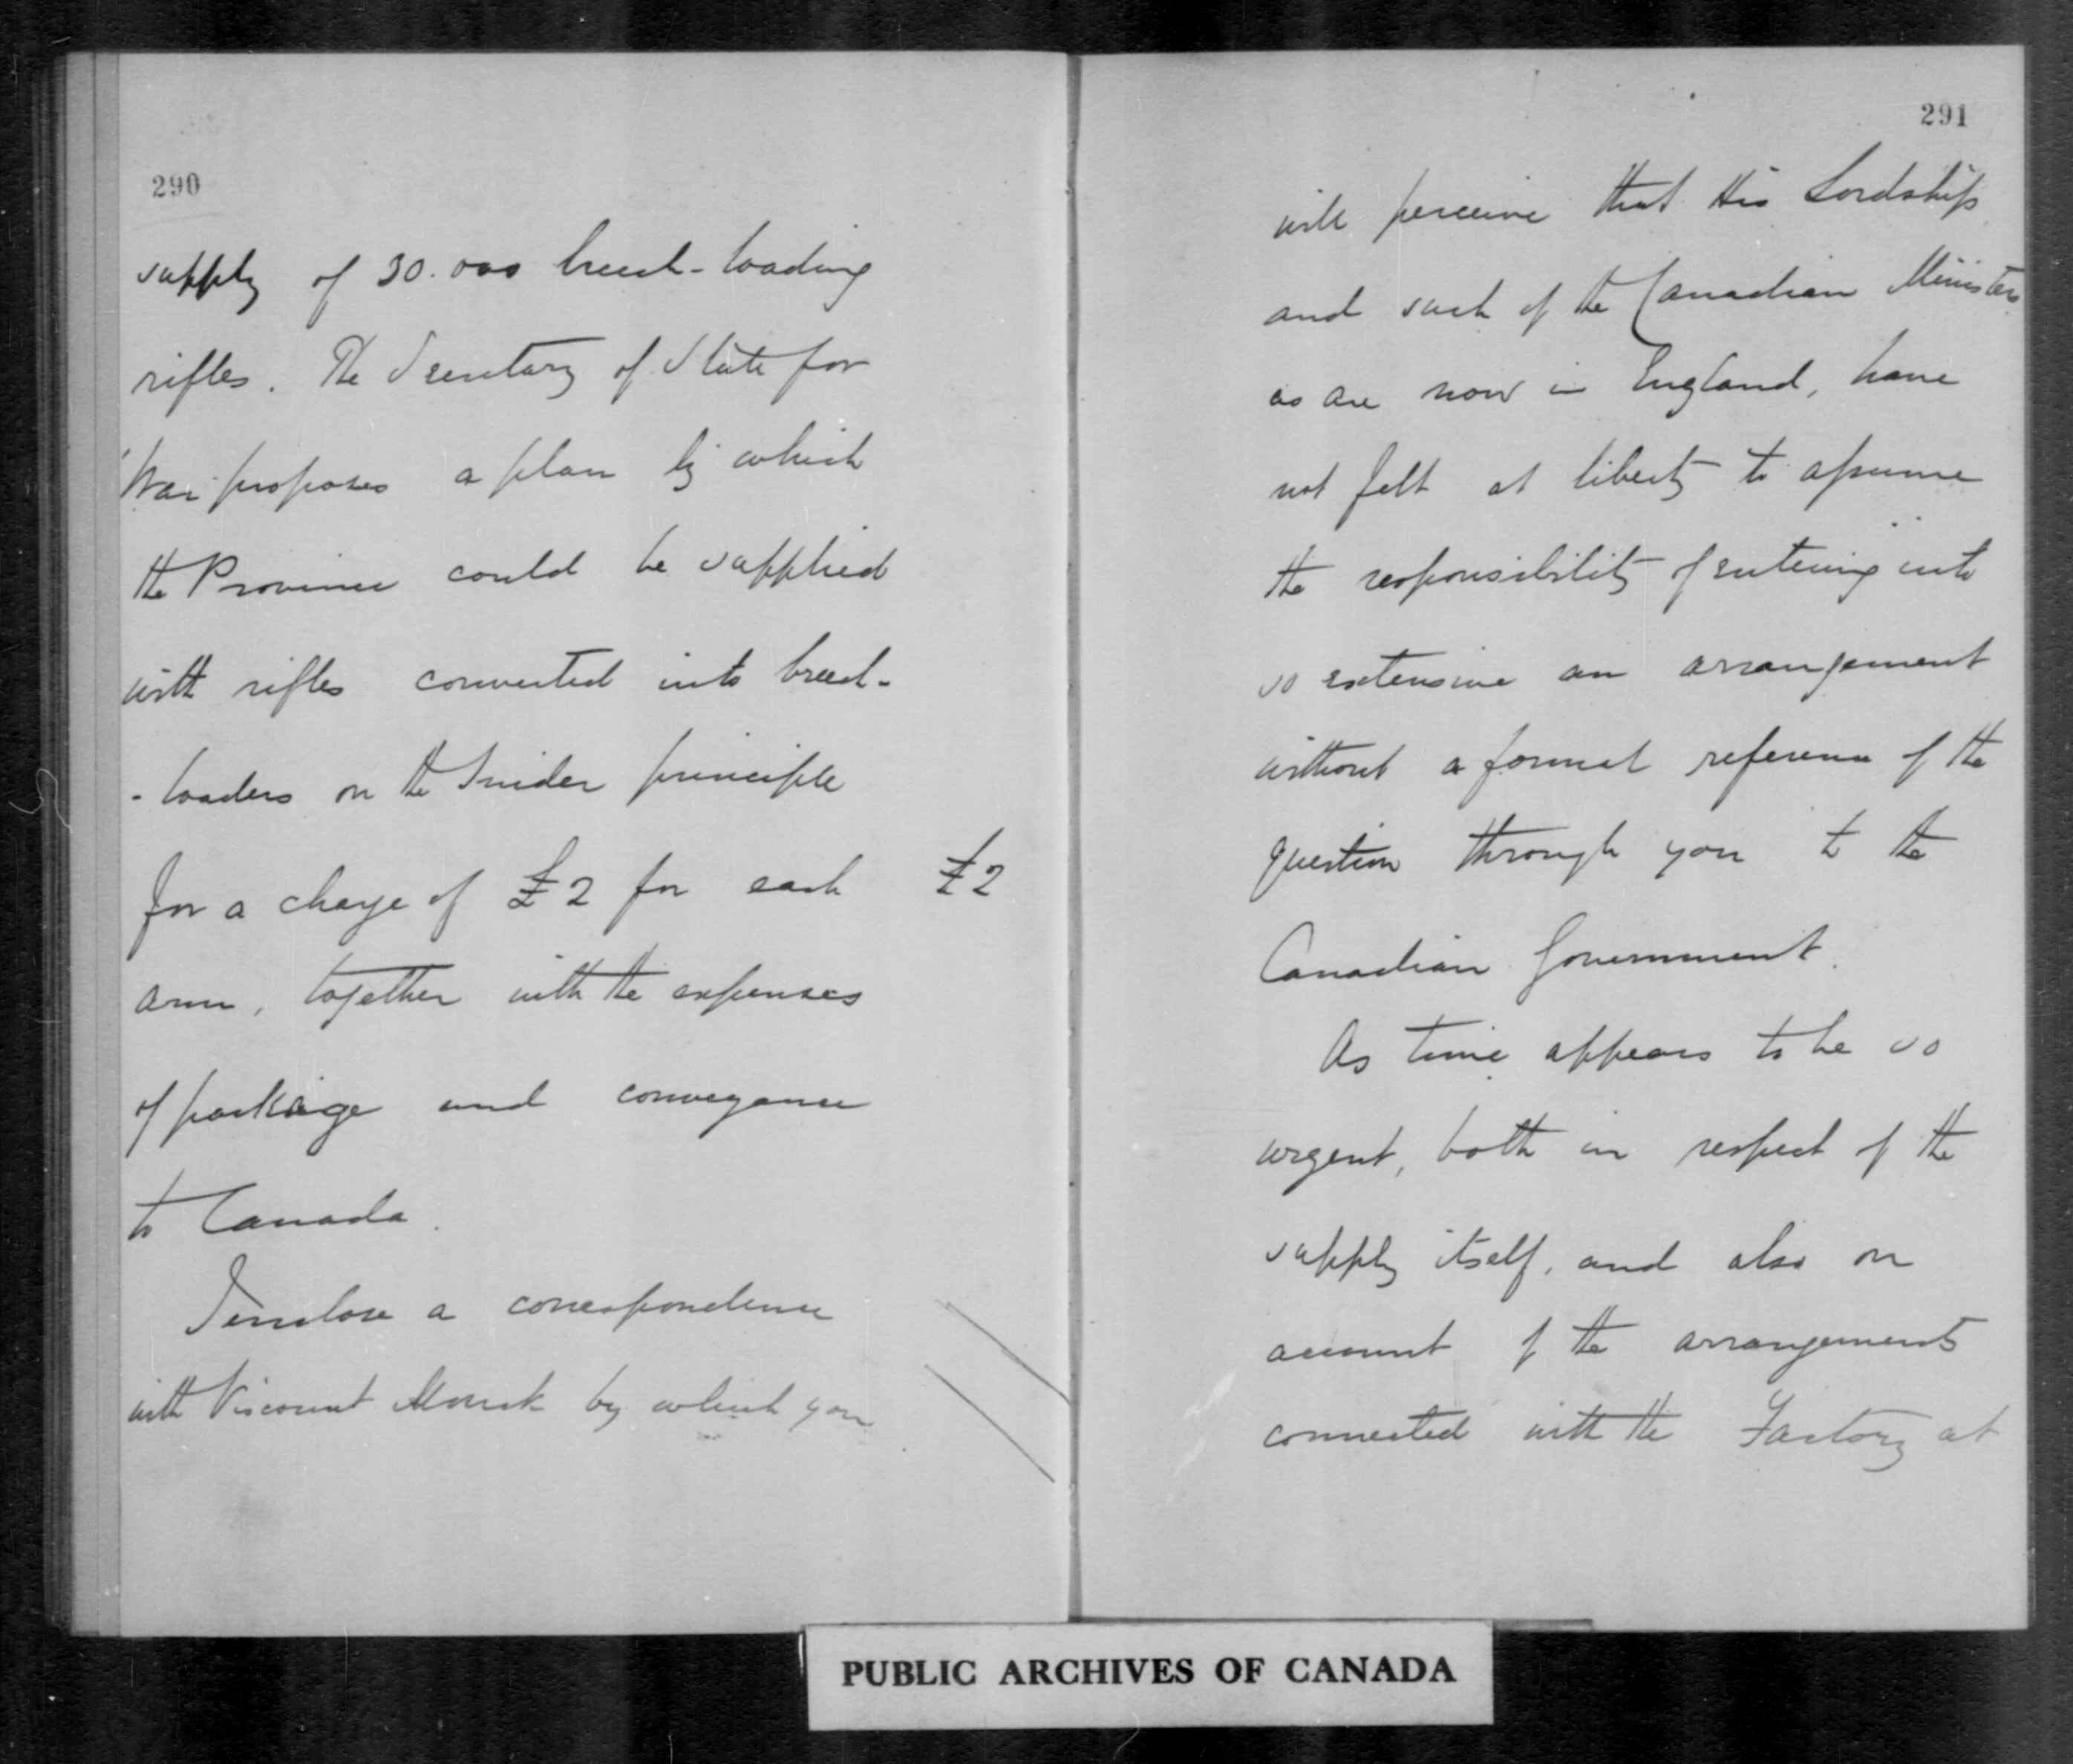 290
supply of 30.000 breech-loading
rifles. The Secretary of State for
War proposes a plan by which
the Province could be supplied
with rifles converted into breech-
-loaders on the Snider principle
for a charge of £2 for each £2
arm, together with the expenses
of package and conveyance
to Canada.
I enclose a correspondence
with Viscount Monck by which you
291
will perceive that His Lordship
and such of the Canadian Ministers
as are now in England, have
not felt at liberty to assume
the responsibility of entering into
so extensive an arrangement
without a formal reference of the
question through you to the
Canadian Government.
As time appears to be so
urgent, both in respect of the
supply itself, and also on
account of the arrangements
connected with the Factory at
PUBLIC ARCHIVES OF CANADA